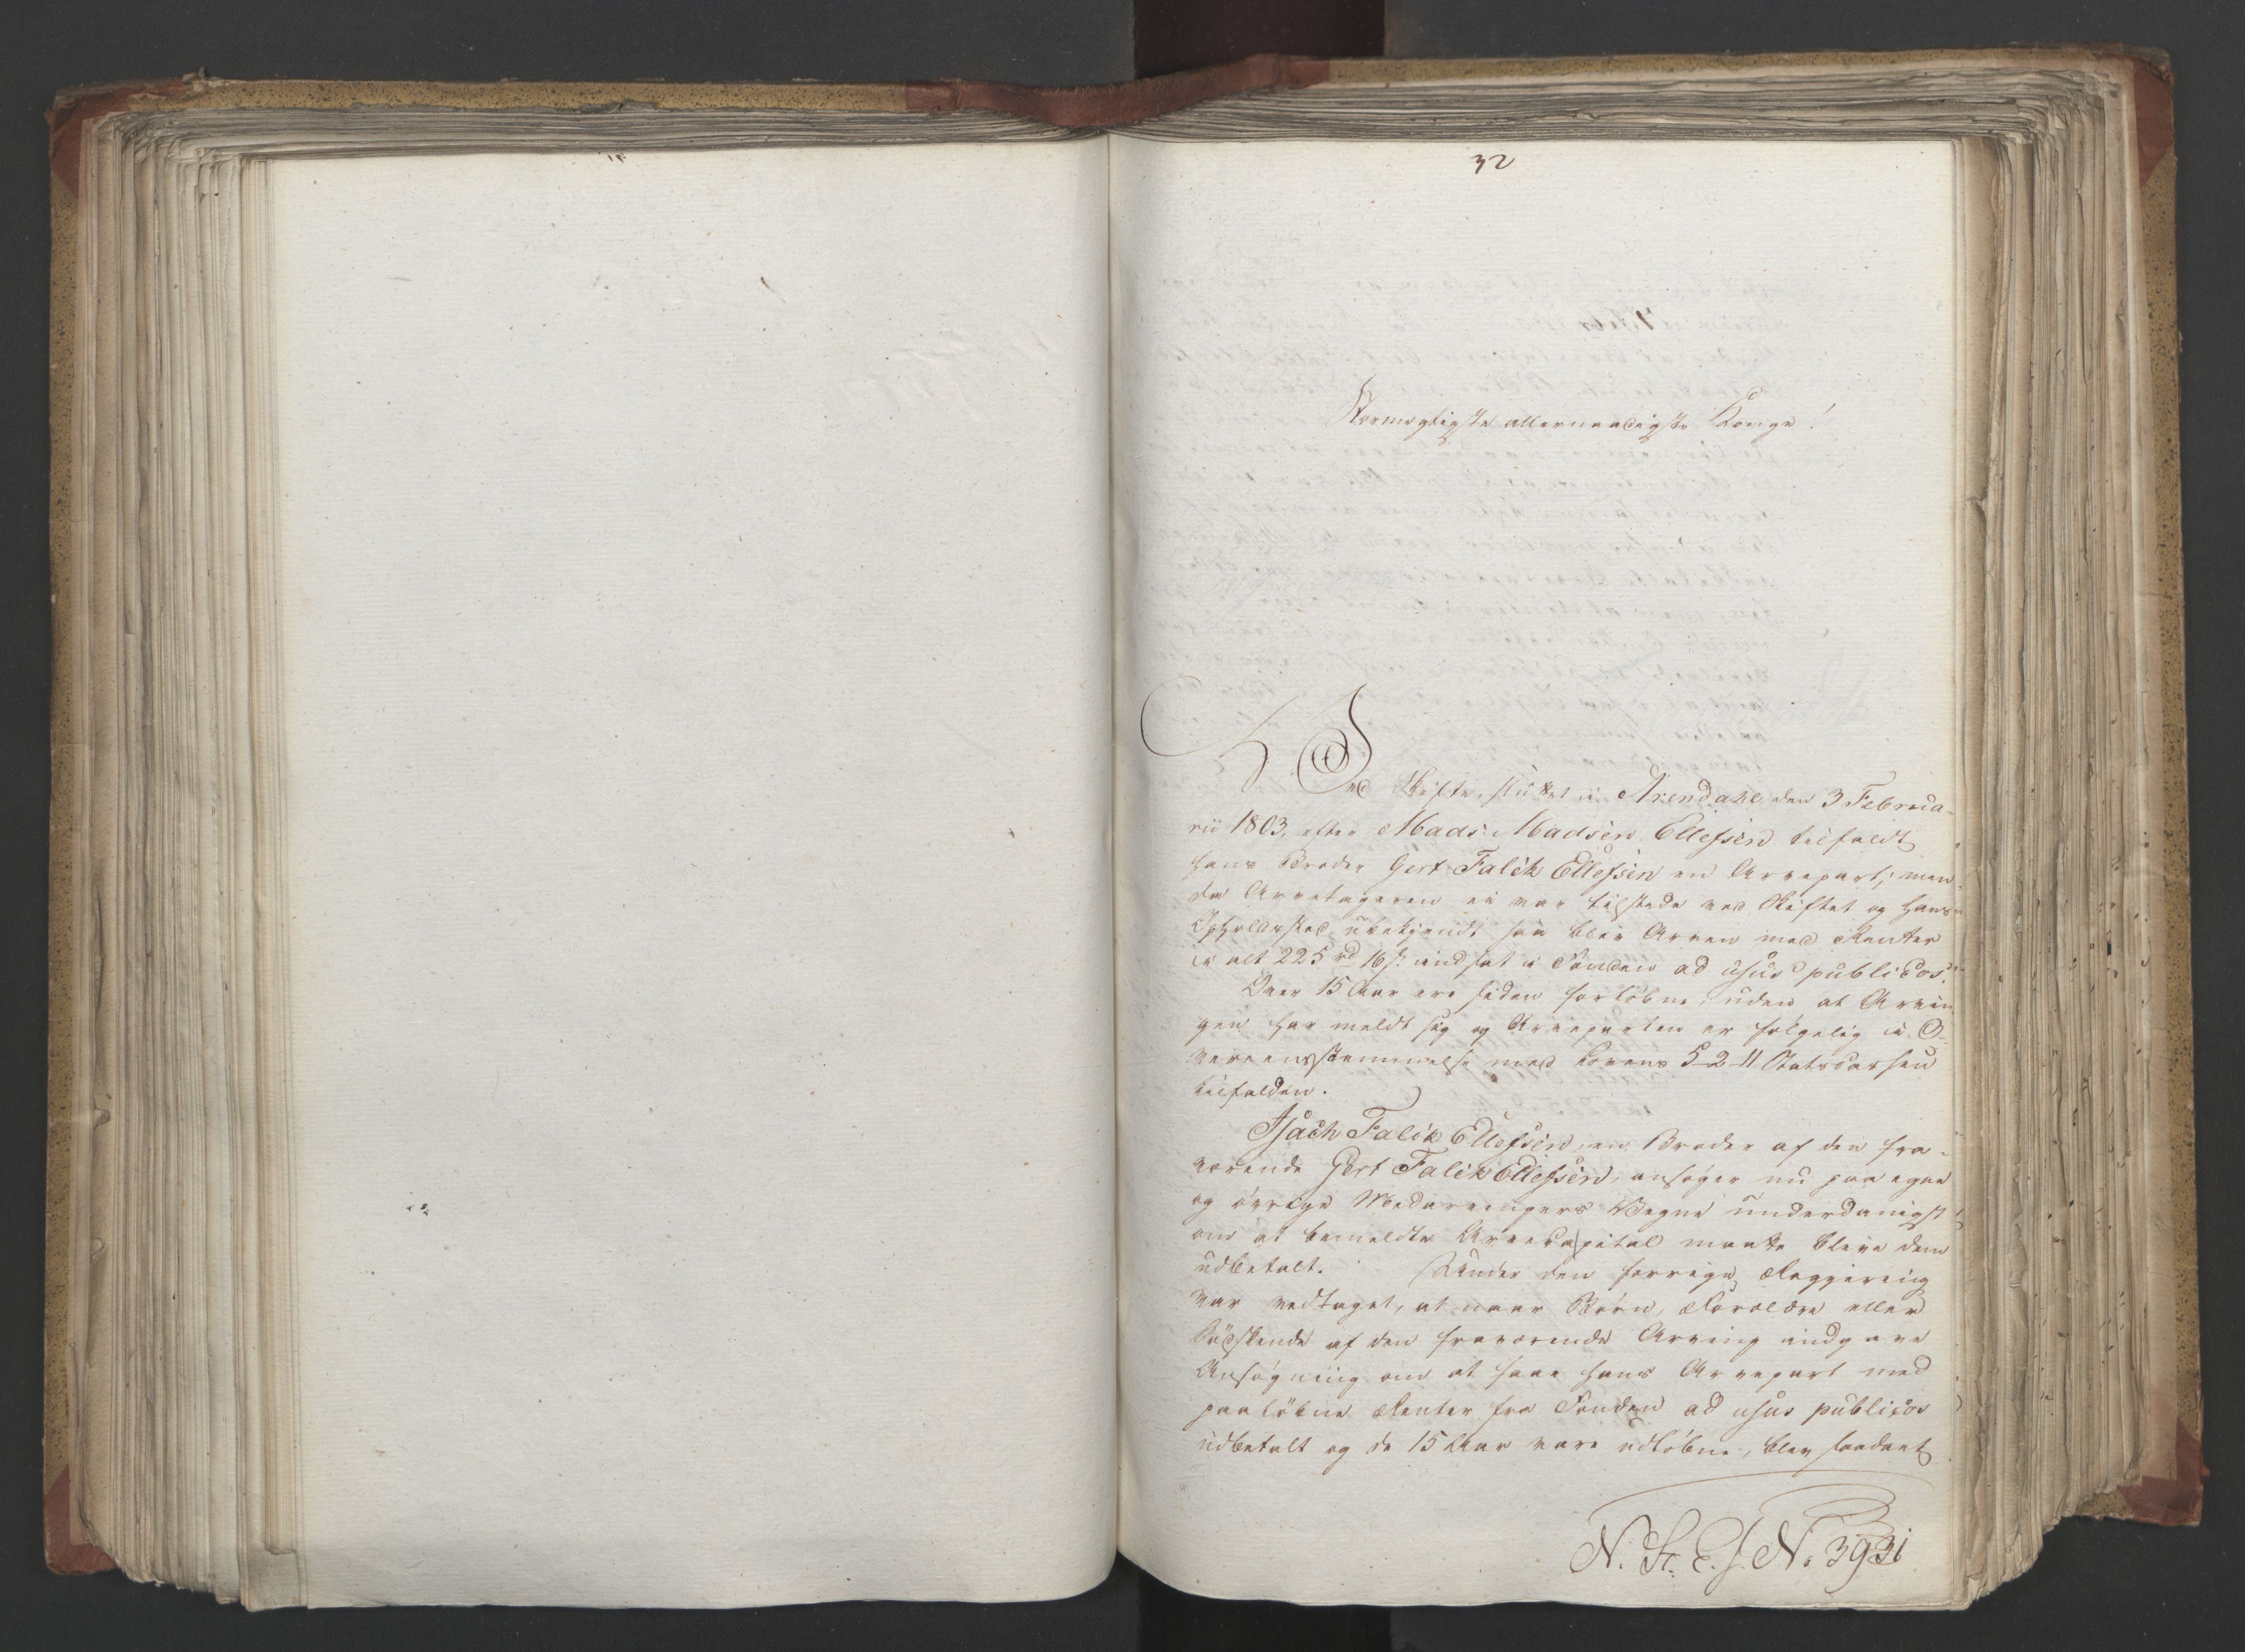 32
Stormægtigste allernaadigste Konge!
Ved Skifte, sluttet i Arendahl den 3 Februa-
rii 1803, efter Mads Madsen Ellefsen tilfaldt
hans Broder Gert Falck Ellefsen en Arvepart; men
da Arvetageren ei var tilstede ved Skiftet og hans
Opholdssted ubekjendt saa blev Arven med Renter
i alt 225 rd 16 s. indsat i Fonden ad usus publicos.
Over 15 Aar ere siden forløbne, uden at Arvin
gen har meldt sig og Arveparten er følgelig i O-
vereensstemmelse med Lovens 5-2-11 Statscassen
tilfalden.
Isach Falck Ellefsen, en Broder af den fra-
værende Gert Falck Ellefsen, ansøger nu paa egne
og øvrige Medarvingers Vegne underdanigst
om at bemeldte Arvecapital maatte blive dem
udbetalt. Under den forrige Regjering
var vedtaget, at naar Børn, Forældre eller
Sødskende af den fraværende Arving indgave
Ansøgning om at faae hans Arvepart med
paaløbne Renter fra Fonden ad usus publicos
udbetalt og de 15 Aar vare udløbne, blev saadant
N. St. E. J. No. 3931